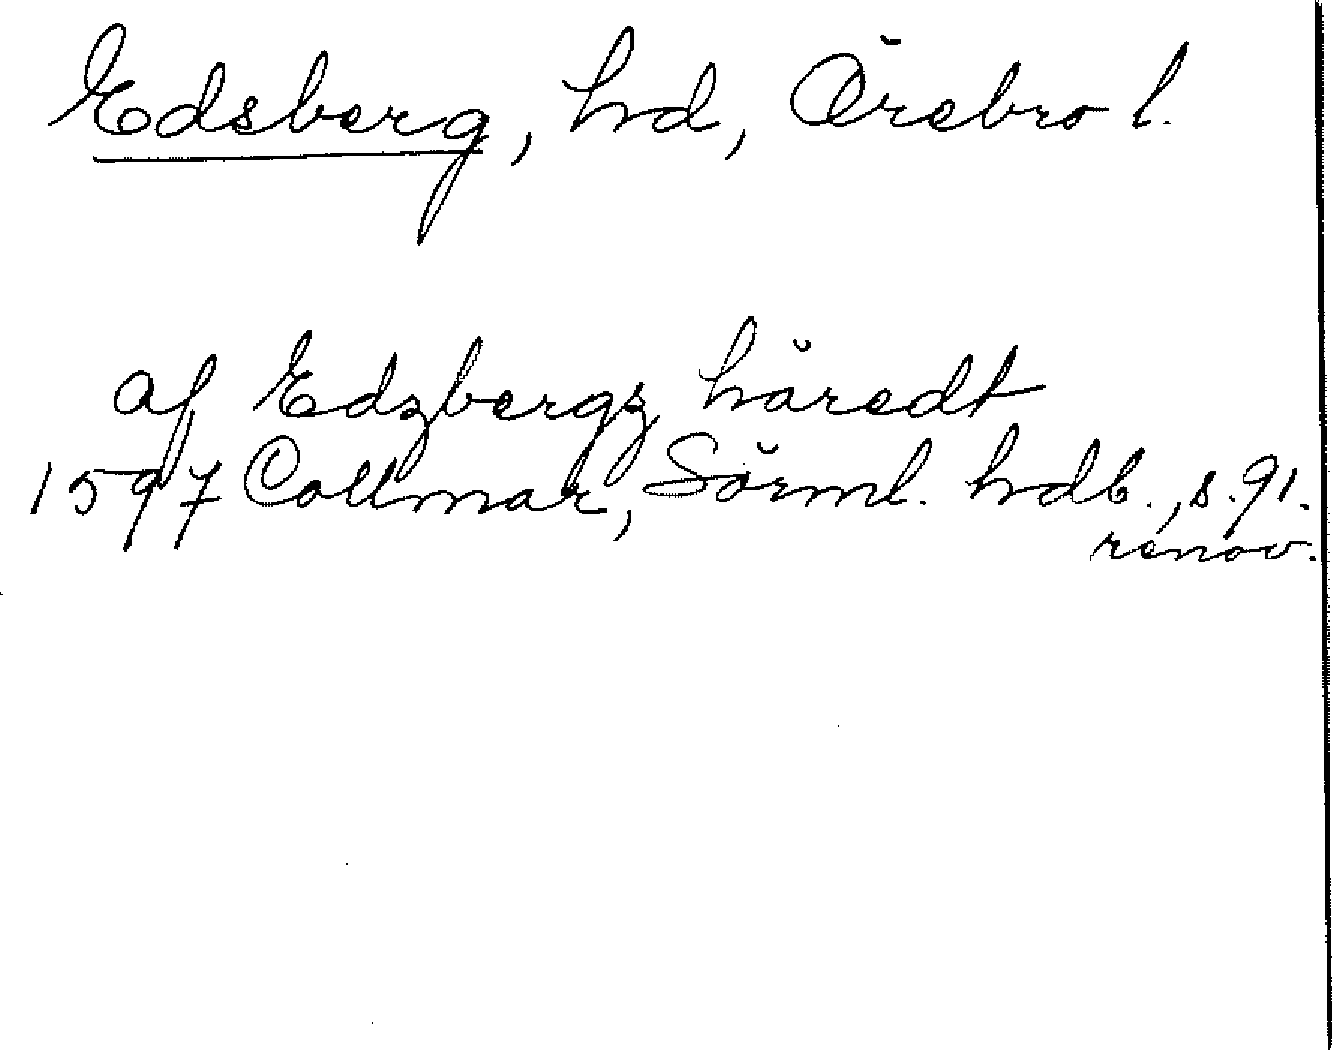 Edsberg, hd, Örebro l.
af Edzbergz häredt
1597 Collmar, Sörml. hdb., s. 91.
renov.